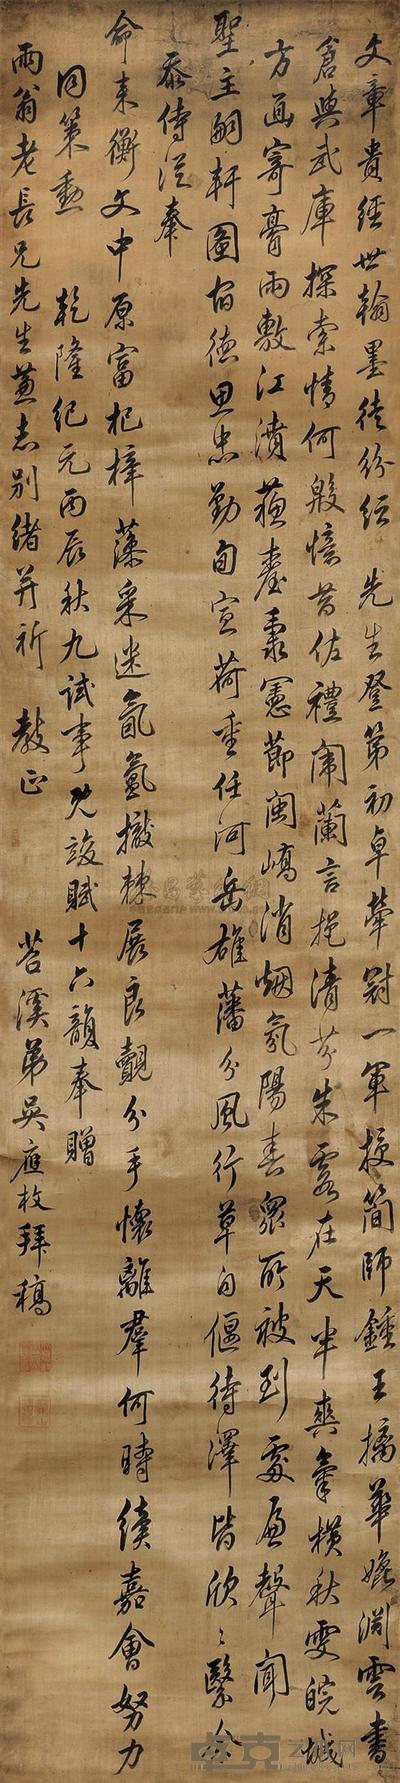 文章貴經世翰墨徒紛紜 先生登第初卓犖冠一軍授簡師鍾王摛華媲淵雲書
倉與武庫探索情何殷憶昔佐禮闈蘭言挹清芬朱霞在天半爽氣橫秋雯皖城
方面寄膏雨敷江濆蘇臺秉憲節閩嶠消烟氛陽春眾所被到處聲聞
聖主嗣軒圖宿德思忠勤旬宣荷重任河岳雄藩分風行草自偃待澤皆欣々繄余
忝侍從奉
命來衡文中原富杞梓藻采迷氤氳撤棘展良覿分手懷離羣何時續嘉會努力
同策勳 乾隆紀元丙辰秋九試事既竣賦十六韻奉贈
雨翁老長兄先生兼志別緒并祈 教正 苕溪弟吳應枚拜稿